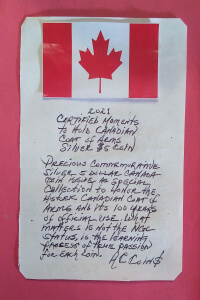 2021
CERTIFIED MOMENTS
TO HOLD CANADIAN
COAT OF ARMS
SILVER $5 COIN
PRECIOUS COMMEMORATIVE
SILVER 5 DOLLAR CANADA
COIN AS SPECIAL
COLLECTION TO HONOR THE
CANADIAN COAT OF
ARMS AND ITS 100 YEARS
OF OFFICIAL USE. WHAT
MATTERS IS NOT THE NGC
STATUS, IS THE LEARNING
PROCESS OF TRUE PASSION
FOR EACH COIN. AC COINS